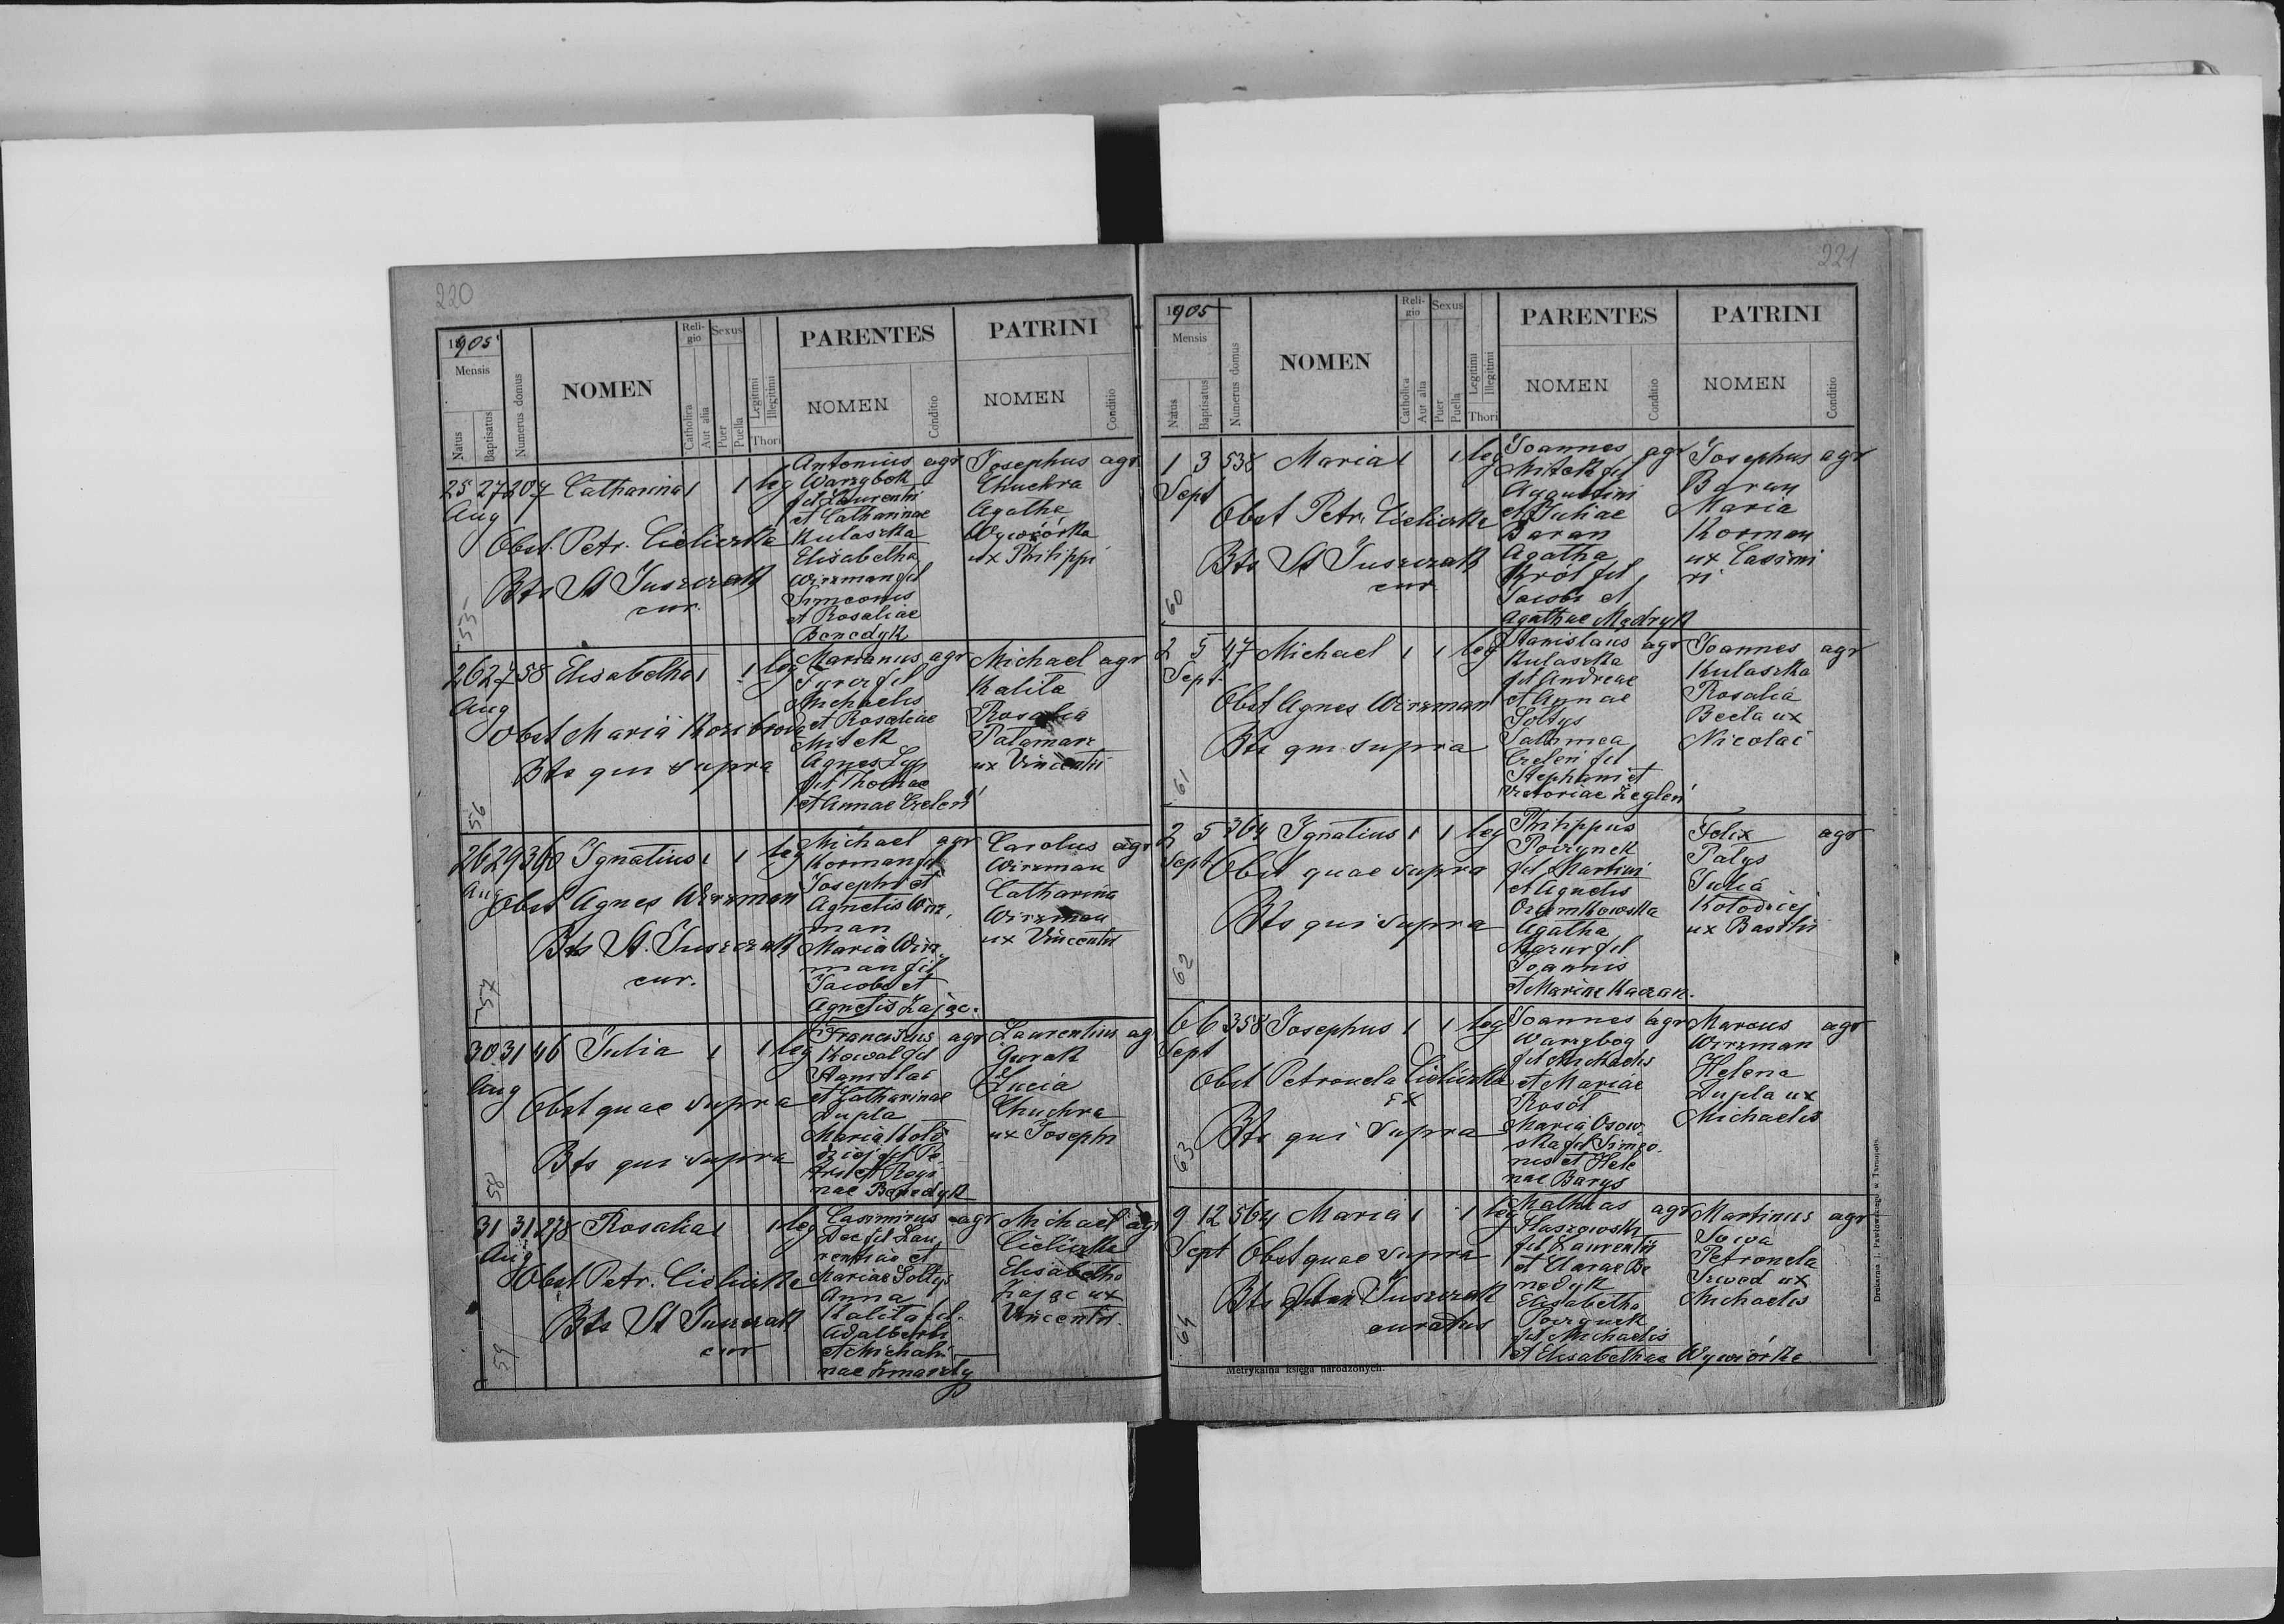 220
1905
Mensis
Natus
Baptisatus
Numerus domus
NOMEN
Religio
Catholica
Aut alia
Sexus
Puer
Puella
Legitimi
Illegitimi
Thori
PARENTES
NOMEN
Conditio
PATRINI
NOMEN
Conditio
25 27 207 Catharina 1 1 leg
Aug
Obst. Petr. Cieliczka
Bts St Juszczak
cur.
55
Antonius agr
Warzybok
fil Laurenti
et Catharinae
Kulaszka
Elisabetha
Wirzman fil
Simeonis
et Rosaliae
Benedyk
Josephus agr
Chuchra
Agatha
Wywiórka
ux Philippi
26 27 58 Elisabetha 1 1 leg
Aug
Obst Maria
Bts qui supra
56
Marianus agr
fil
Michaelis
et Rosaliae
Mitek
Agnes
fil Thomae
et Annae Czeleń
Michael agr
Kalita
Rosalia
Palamarz
ux Vincentii
26 29 360 Ignatius 1 1 leg
Aug
Obst Agnes Wirzman
Bts St. Juszczak
cur.
57
Michael agr
Korman fil
Josephi et
Agnetis Wirz
man
Maria Wirz
man fil
Jacobi et
Agnetis Zając.
Carolus agr
Wirzman
Catharina
Wirzman
ux Vincentii
30 31 46 Julia 1 1 leg
Aug
Obst quae supra
Bts qui supra
58
Franciscus agr
Kowal fil
Stanislai
et Catharinae
Dupla
Maria Koło
dziej fil Pe
tri et Regi
nae Benedyk
Laurentius ag
Gurak
Lucia
Chuchra
ux Josephi
31 31 278 Rosalia 1 1 leg
Aug
Obst. Petr. Cieliczka
Bts St Juszczak
cur
59
Casimirus agr
Dec fil Lau
rentiae et
Mariae Soltys
Anna
Kalita fil.
Adalberti
et Michali
nae
Michael agr
Cieliczka
Elisabetha
Zając ux
Vincentii.
221
1905
Mensis
Natus
Baptisatus
Numerus domus
NOMEN
Religio
Catholica
Aut alia
Sexus
Puer
Puella
Legitimi
Illegitimi
Thori
PARENTES
NOMEN
Conditio
PATRINI
NOMEN
Conditio
1 3 538 Maria 1 1 leg
Sept
Obst Petr. Cieliczka
Bts St Juszczak
cur
60
Joannes agr
Mitek fil
Augustini
et Juliae
Baran
Agatha
Król fil
Jacobi et
Agathae Mędryk
Josephus agr
Baran
Maria
Korman
ux Casimi
ri
2 5 47 Michael 1 1 leg
Sept.
Obst Agnes Wirzman
Bts qui supra
61
Stanislaus agr
Kulaszka
fil Andreae
et Annae
Soltys
Salomea
Czeleń fil
Stephani et
Victoriae Żegleń
Joannes agr
Kulaszka
Rosalia
Becla ux
Nicolai
2 5 364 Ignatius 1 1 leg
Sept
Obst quae supra
Bts qui supra
62
Philippus
fil Martini
et Agnetis
Agatha
Mazur fil
Joannis
et Mariae Kaczan.
Felix agr
Patys
Julia
Kołodziej
ux Basilii
6 6 358 Josephus 1 1 leg
Sept
Obst Petronela Cieliczka
Bts qui supra
63
Joannes agr
Warzybog
fil Michaelis
et Mariae
Rosół
Maria Osow
ska fil Simeo
nis et Hele
nae Barys
Marcus agr
Wirzman
Helena
Dupla ux
Michaelis
9 12 564 Maria 1 1 leg
Sept
Obst quae supra
Bts Juszczak
curatus
64
Mathias agr
fil Laurentii
et Clarae Be
nedyk
Elisabetha
fil Michaelis
et Elisabethae Wywiórka
Martinus agr
Sowa
Petronela
Szwed ux
Michaelis
Metrykalna księga narodzonych.
Drukarnia J. Pawłowskiego w Tarnopolu.